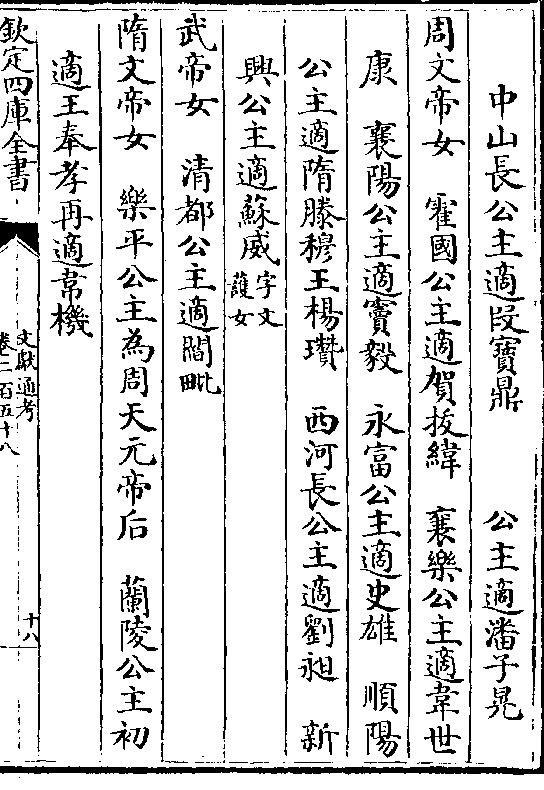 中山長公主適段寶鼎　公主適潘子晃
周文帝女　霍國公主適賀拔緯　襄樂公主適韋世
康　襄陽公主適竇毅　永富公主適史雄　順陽
公主適隋滕穆王楊瓚　西河長公主適劉昶　新
興公主適蘇威字文護女
武帝女　清都公主適閻毗
隋文帝女　樂平公主為周天元帝后　蘭陵公主初
適王奉孝再適韋機
欽定四庫全書
文獻通考
卷二百五十八
十八